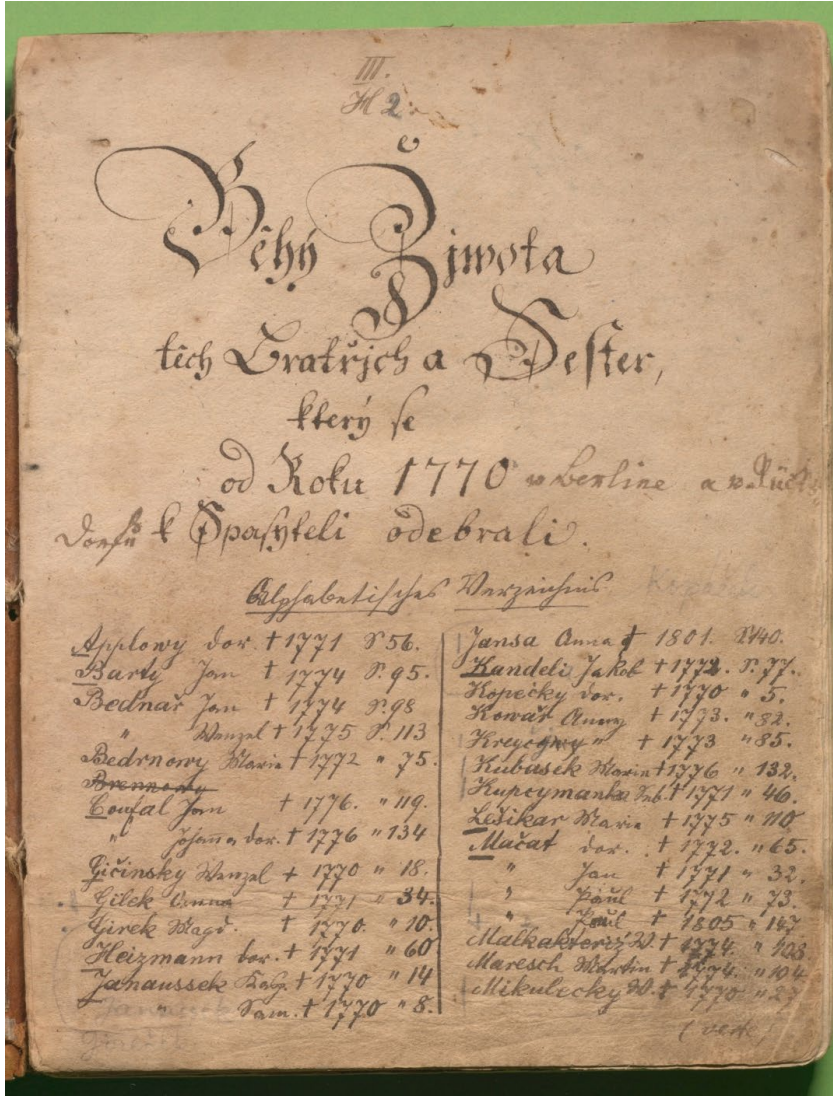 III.
H 2.
Běhý Žiwota
těch Bratřjch a Sester,
který se
od Roku 1770 w Berline a w
Dorfu k Spasyteli odebrali.
Alphabetisches Verzeichnis
Applowy dor. † 1771 S. 56.
Barty Jan † 1774 S. 95.
Bednař Jan † 1774 S. 98
" Wenzel † 1775 S. 113
Bedrnowy Marie † 1772 " 75.
Brennowy
Coufal Jan † 1776. " 119.
" Johanna dor. † 1776 " 134
Gičinsky Wenzel † 1770 " 18.
Gilek Anna † 1771 " 34.
Girek Magd. † 1770. " 10.
Heizmann dor. † 1771 " 60
Janaussek Kaƶ. † 1770 " 14
Sam. † 1770 " 8.
Jansa Anna † 1801. S. 140.
Kandeli Jakob † 1772. S. 77.
Kopečky dor. † 1770 " 5.
Kowař Anny † 1773. " 82.
" † 1773 " 85.
Kubasek Marie † 1776 " 132.
Kupcymanka Seb. † 1771 " 46.
Lešikar Marie † 1775 " 110
Mačat dor. † 1772. " 65.
" Jan † 1771 " 32.
" Paul † 1772 " 73.
" Paul † 1805 " 147
W. † 1774. " 108.
Maresch Martin † 1774. " 104
Mikulecky W. † 1770 " 27
(verte)